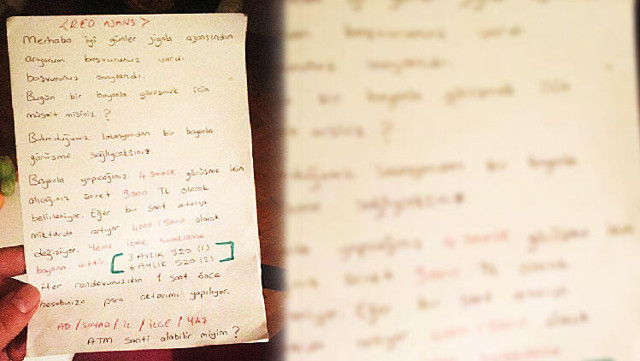 <RED AJANS>
Merhaba iyi günler jigolo ajansından
arıyorum başvurunuz vardı
başvurunuz onaylandı.
Bugün bir bayanla görüşmek için
müsait misiniz ?
Bulunduğunuz lokasyondan bir bayanla
görüşme sağlıycaksınız.
Bayanla yapıcağınız 4 saatlik görüşme için
alıcağınız ücret TL olarak
belirleniyor. Eğer bu saat artarsa
miktarda artıyor olarak
değişiyor. Yeme içme konaklama
bayana aittir. [3 AYLIK 320 (1)
6 AYLIK 520 (2)]
Her randevunuzdan 1 saat önce
hesabınıza para aktarımı yapılıyor.
AD / SOYAD / İL / İLÇE / YAŞ
ATM saati alabilir miyim ?